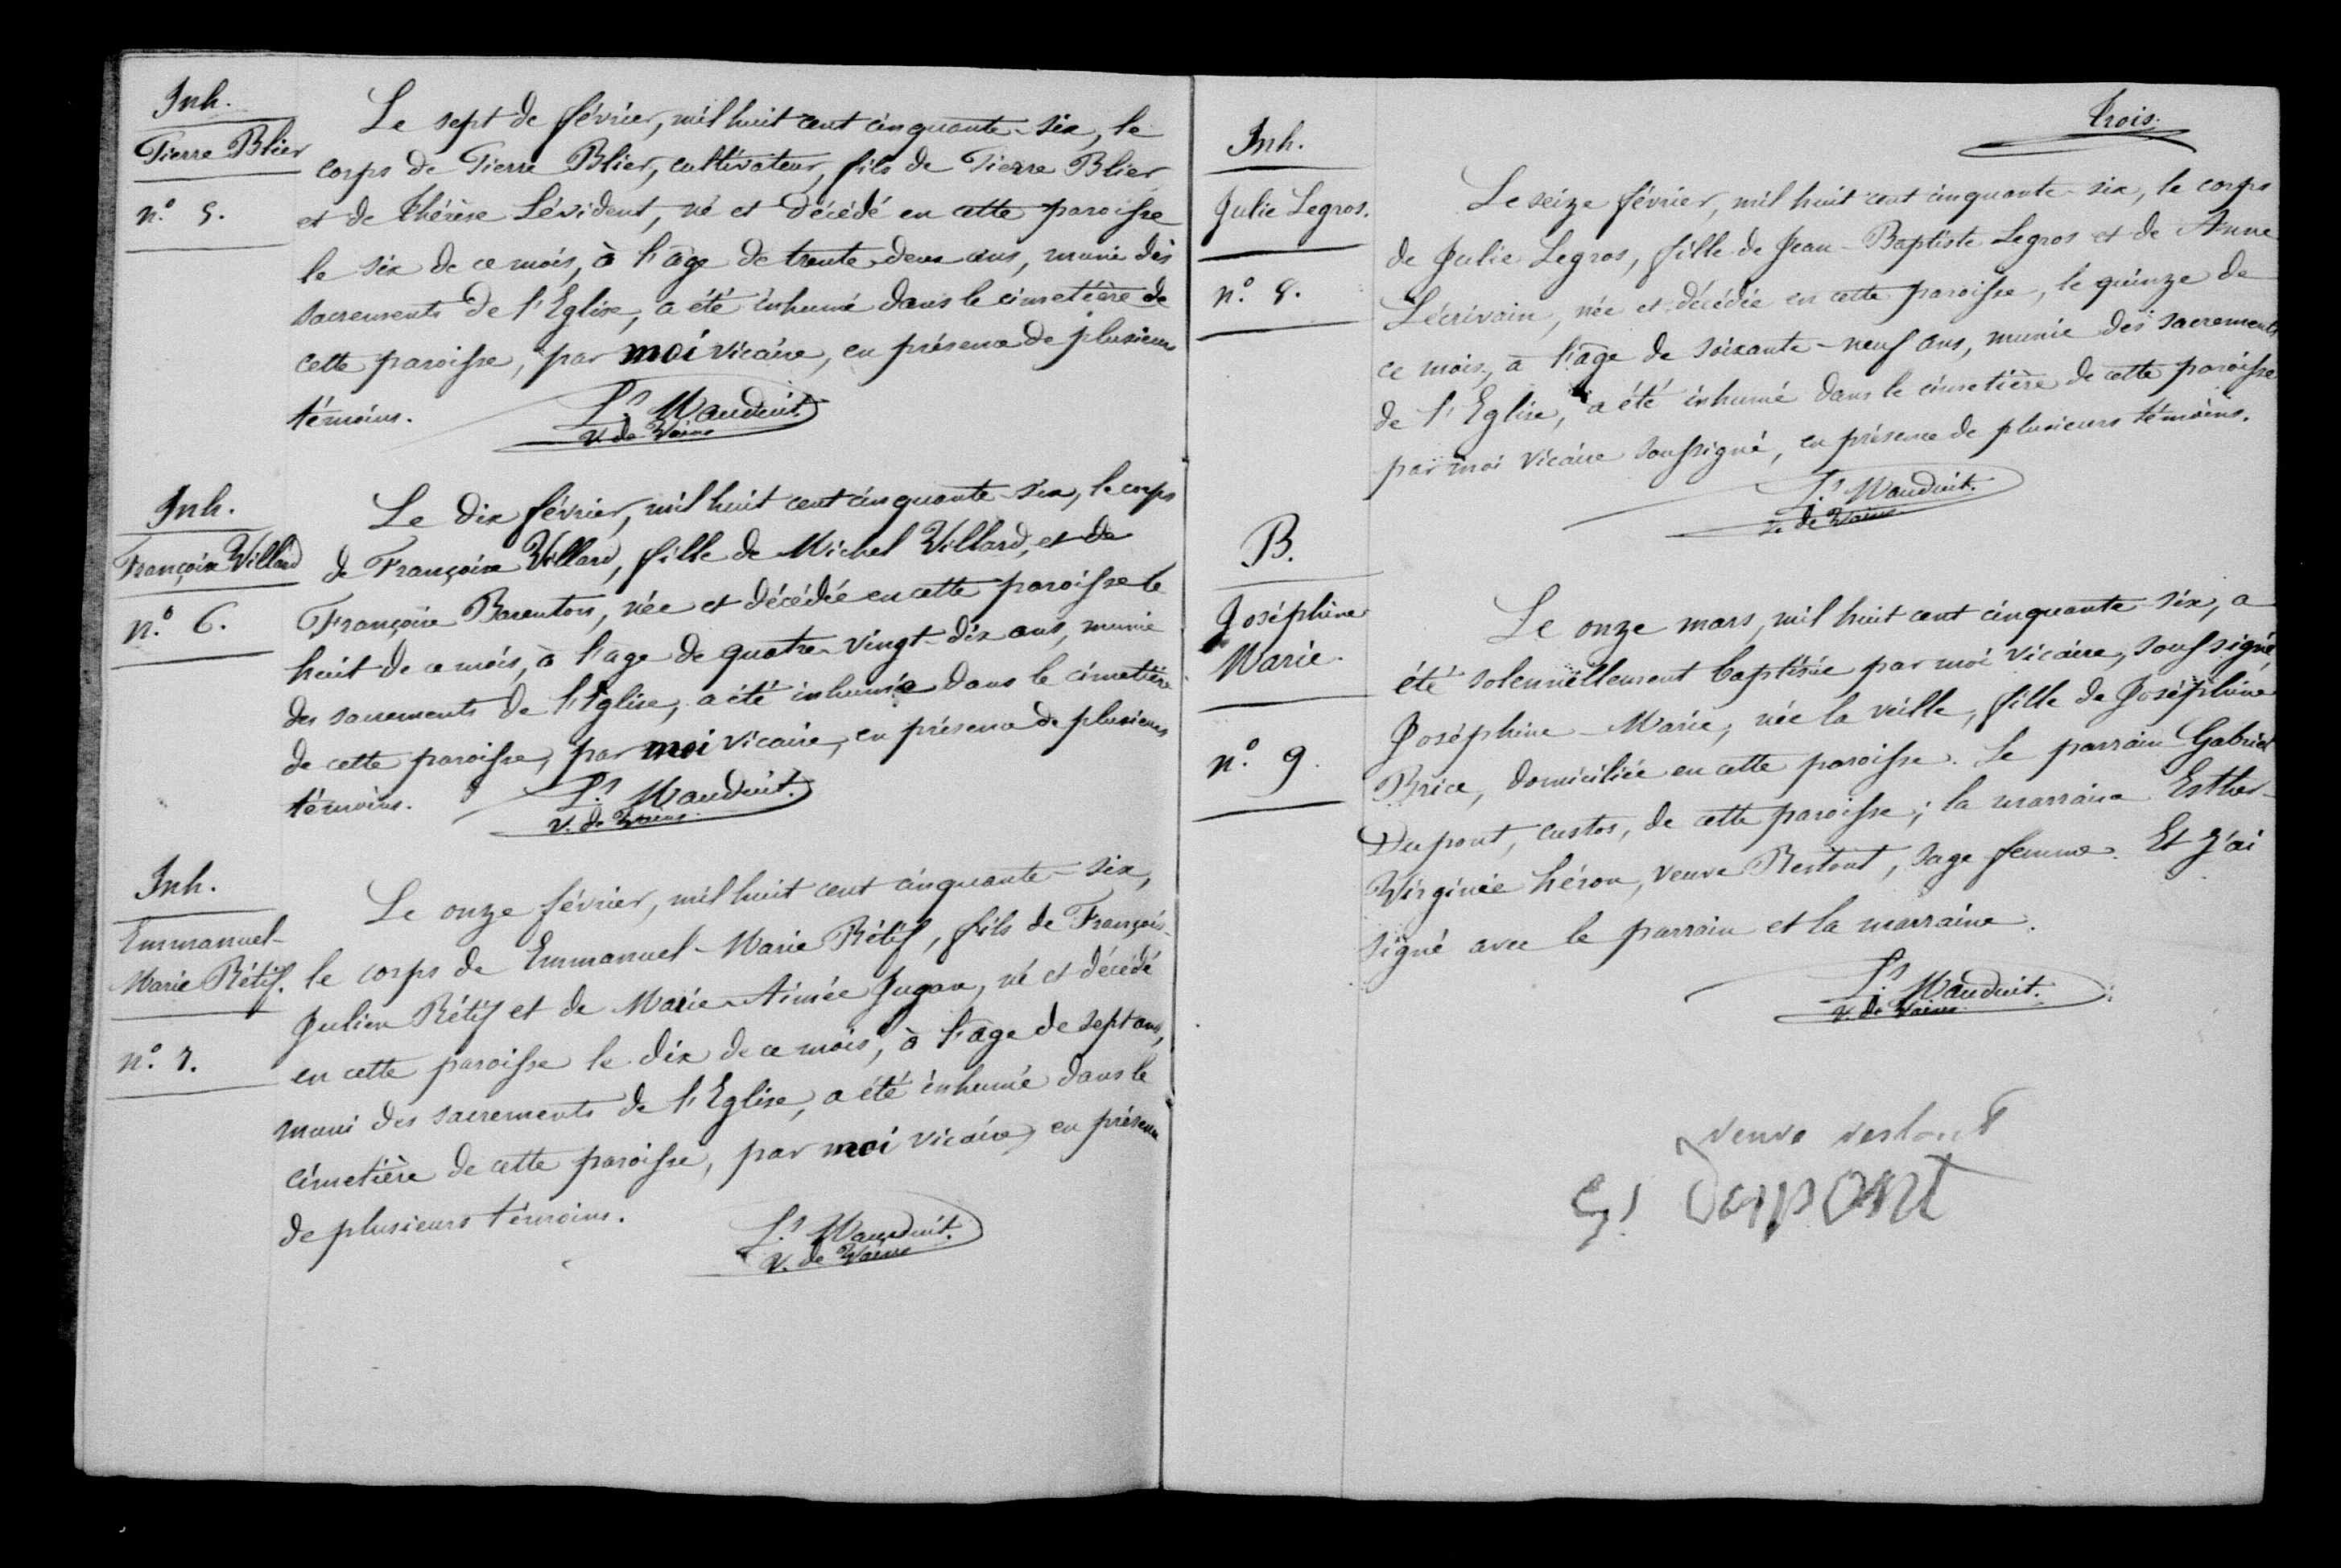 Inh.
Pierre Blier
n.° 5.
Le sept de février, mil huit cent cinquante-six, le
corps de Pierre Blier, cultivateur, fils de Pierre Blier
et de Thérèse Lévident, né et décédé en cette paroisse
le six de ce mois, à l'âge de trente deux ans, muni des
sacrements de l'Eglise, a été inhumé dans le cimetière de
cette paroisse, par moi vicaire, en présence de plusieurs
témoins.
L.s Mauduit.
v. de Vains
Inh.
Françoise Villard
n.° 6.
Le dix février, mil huit cent cinquante-six, le corps
de Françoise Villard, fille de Michel Villard, et de
Françoise Barenton, née et décédée en cette paroisse le
huit de ce mois, à l'age de quatre-vingt-dix ans, munie
des sacrements de l'Eglise, a été inhumée dans le cimetière
de cette paroisse, par moi vicaire, en présence de plusieurs
témoins.
L.s Mauduit.
v. de Vains.
Inh.
Emmanuel-
Marie Rétif.
n.° 7.
Le onze février, mil huit cent cinquante-six,
le corps de Emmanuel-Marie Rétif, fils de François-
Julien Rétif et de Marie-Aimée Jugan, né et décédé
en cette paroisse le dix de ce mois, à l'âge de sept ans,
muni des sacrements de l'Eglise, a été inhumé dans le
cimetière de cette paroisse, par moi vicaire, en présence
de plusieurs témoins.
L.s Mauduit.
v. de Vains
trois.
Inh.
Julie Legros.
n.° 8.
Le seize février, mil huit cent cinquante-six, le corps
de Julie Legros, fille de Jean-Baptiste Legros et de Anne
Lécrivain, née et décédée en cette paroisse, le quinze de
ce mois, à l'âge de soixante-neuf ans, munie des sacrements
de l'Eglise, a été inhumé dans le cimetière de cette paroisse
par moi vicaire soussigné, en présence de plusieurs témoins.
L.s Mauduit.
v. de Vains
B.
Joséphine
Marie.
n.° 9.
Le onze mars, mil huit cent cinquante-six, a
été solennellement baptisée par moi vicaire, soussigné,
Joséphine-Marie, née la veille, fille de Joséphine
Brice, domiciliée en cette paroisse. Le parrain Gabriel
Dupont, custos, de cette paroisse; la marraine Esther-
Virginie héron, veuve Restout, sage femme. Et j'ai
signé avec le parrain et la marraine.
L.s Mauduit.
v. de Vains.
veuve restout
G. Dupont